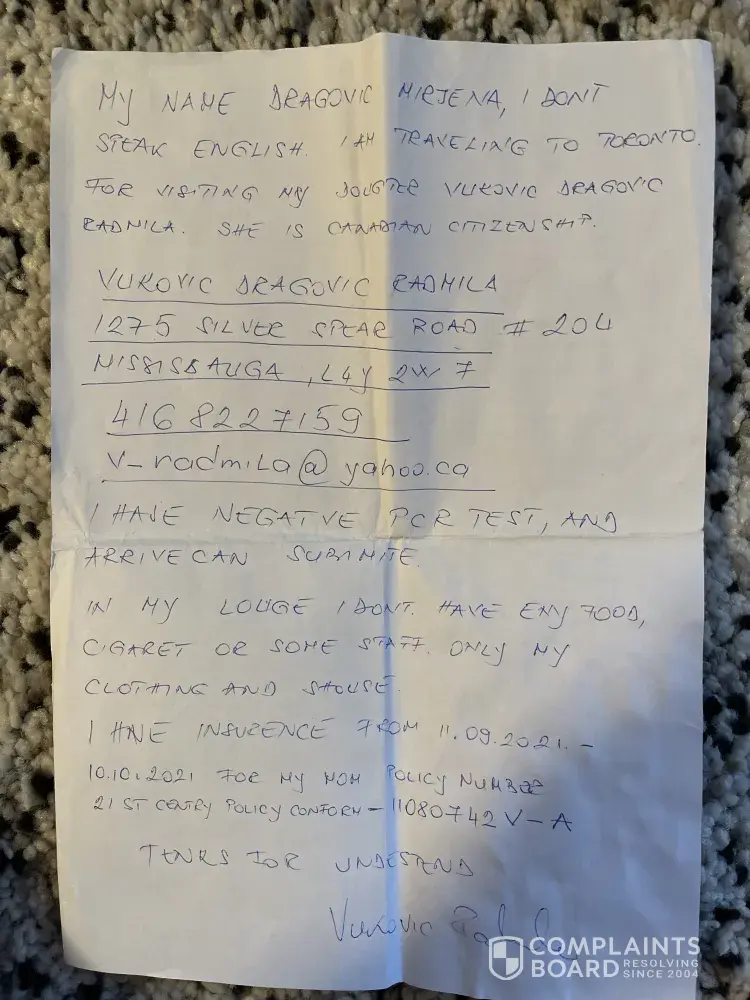 MY NAME DRAGOVIC MIRJENA, I DONT
SPEAK ENGLISH. I AM TRAVELING TO TORONTO.
FOR VISITING MY DOUGTER VUKOVIC DRAGOVIC
RADMILA. SHE IS CANADIAN CITIZENSHIP.
VUKOVIC DRAGOVIC RADMILA
1275 SILVER SPEAR ROAD # 204
MISSISSAUGA, L4Y 2W7
416 8227159
v_radmila@yahoo.ca
I HAVE NEGATVE PCR TEST, AND
ARRIVECAN SUBMITE.
IN MY LOUGE I DONT HAVE ENY FOOD,
CIGARET OR SOME STAFF. ONLY MY
CLOTHING AND SHOUSE.
I HAVE INSURENCE FROM 11.09.2021. -
10.10.2021 FOR MY MOM POLICY NUMBER
21 ST CENTRY POLICY CONFORM - 11080742V-A
TENKS FOR UNDESTEND
Vukovic
COMPLAINTS
BOARD RESOLVING
SINCE 2004